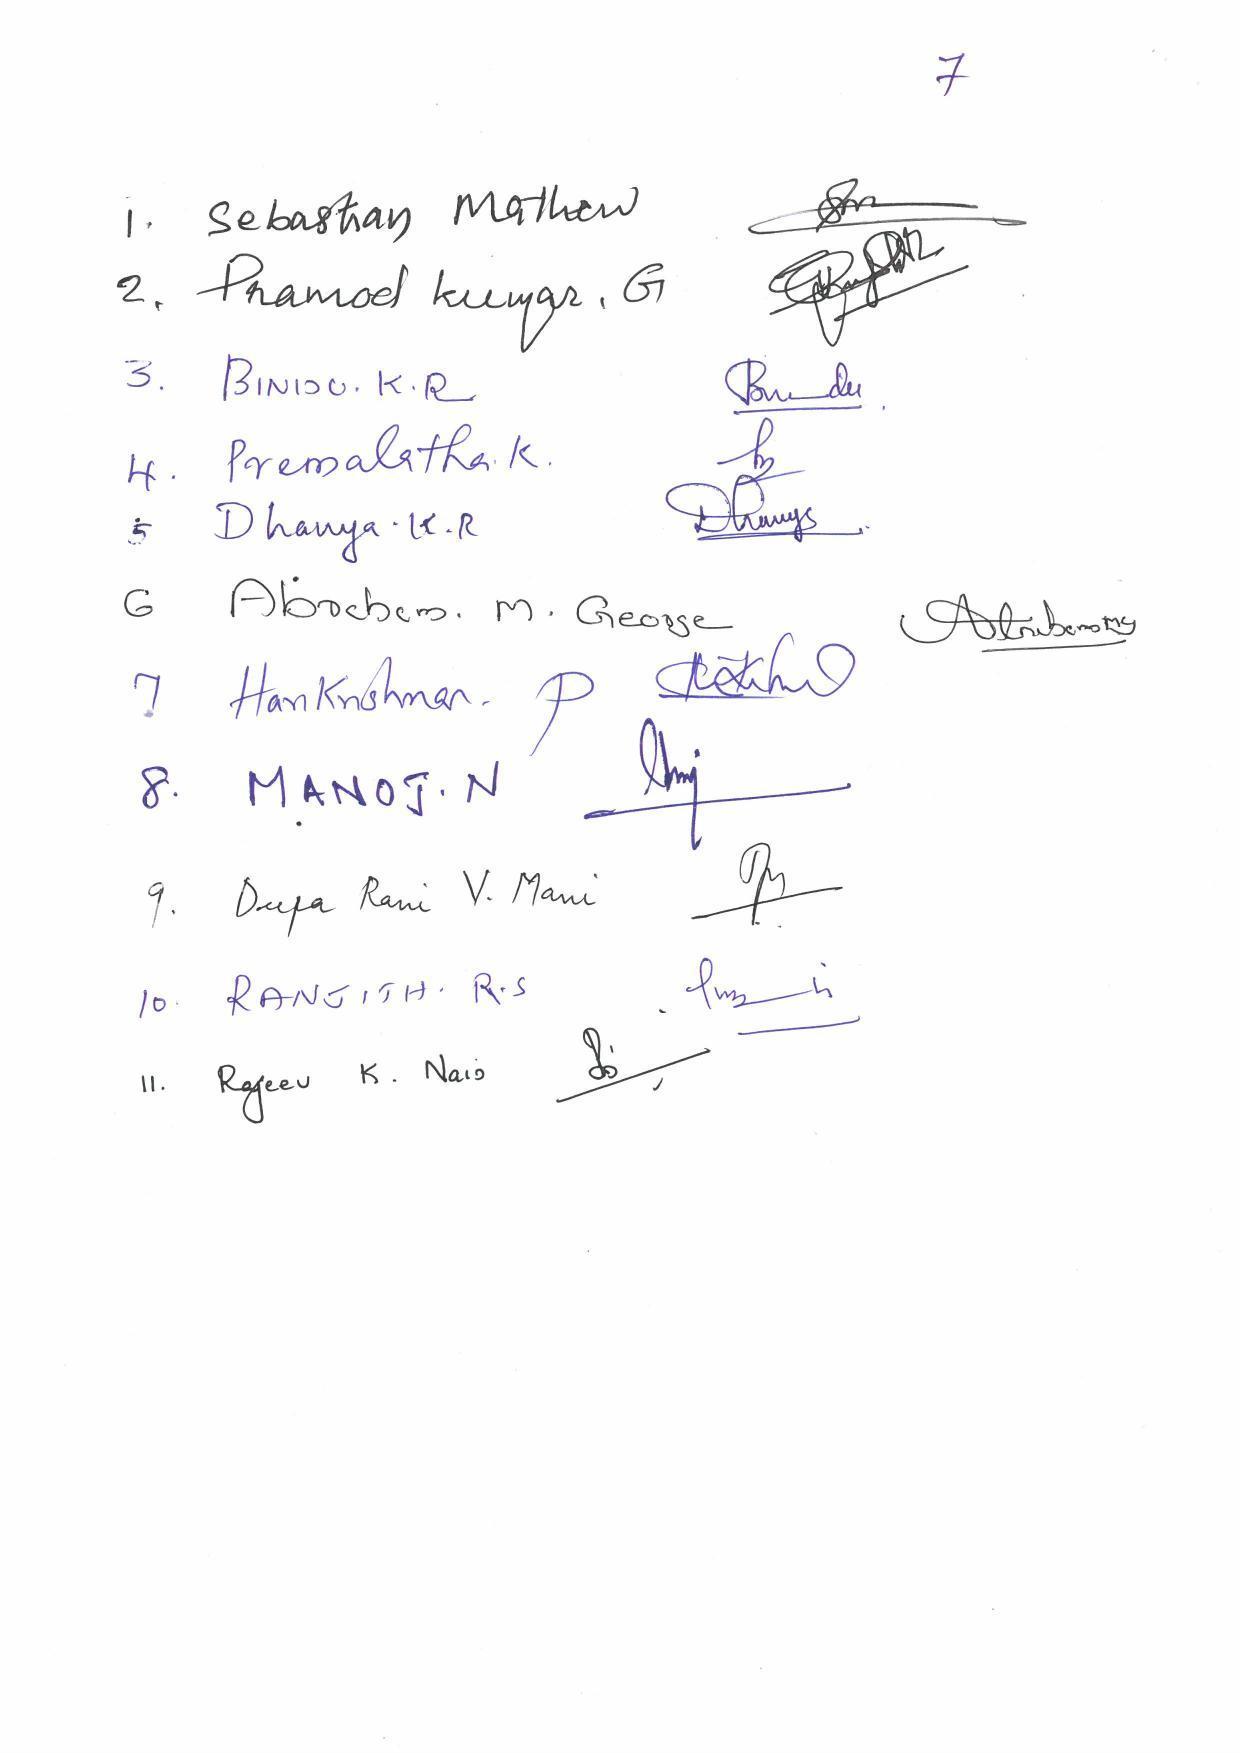 7
1. Sebastian Mathew
2. Pramod Kumar. G
3. BINDU. K.R Bindu
4. Premalatha. K.
5 Dhanya. K.R Dhanya
6 Abraham. M. George
7 Harikrishnan. P
8. MANOJ. N
9. Deepa Rani V. Mani
10. RANJITH. R.S
11. Rajeev K. Nair